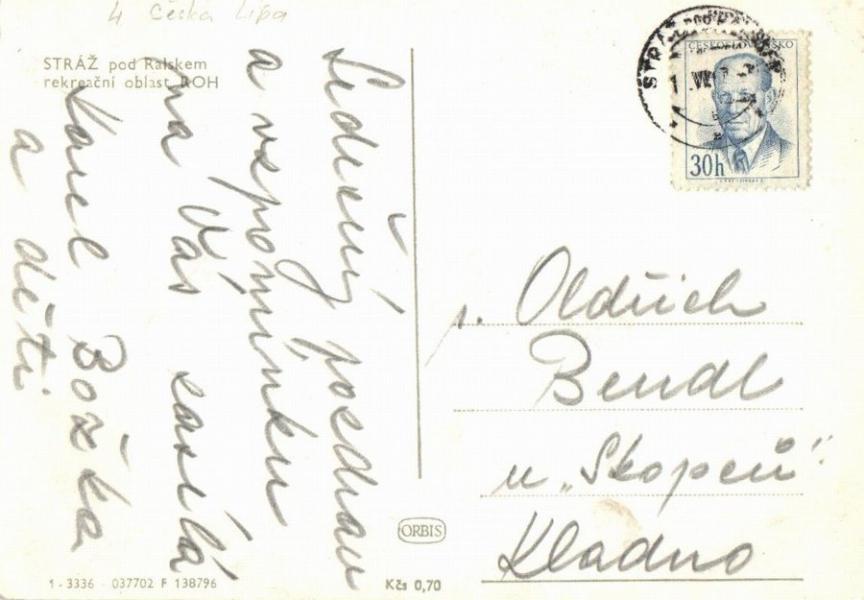 4 Česká Lípa
STRÁŽ pod Ralskem
rekreační oblast ROH
Srdečný pozdrav
a vzpomínku
na Vás zasílá
Karel Božka
a děti
ČESKOSLOVENSKO
30h
p. Oldřich
Bendl
u „Skopců“
Kladno
ORBIS
1-3336 037702 F 138796
Kčs 0,70